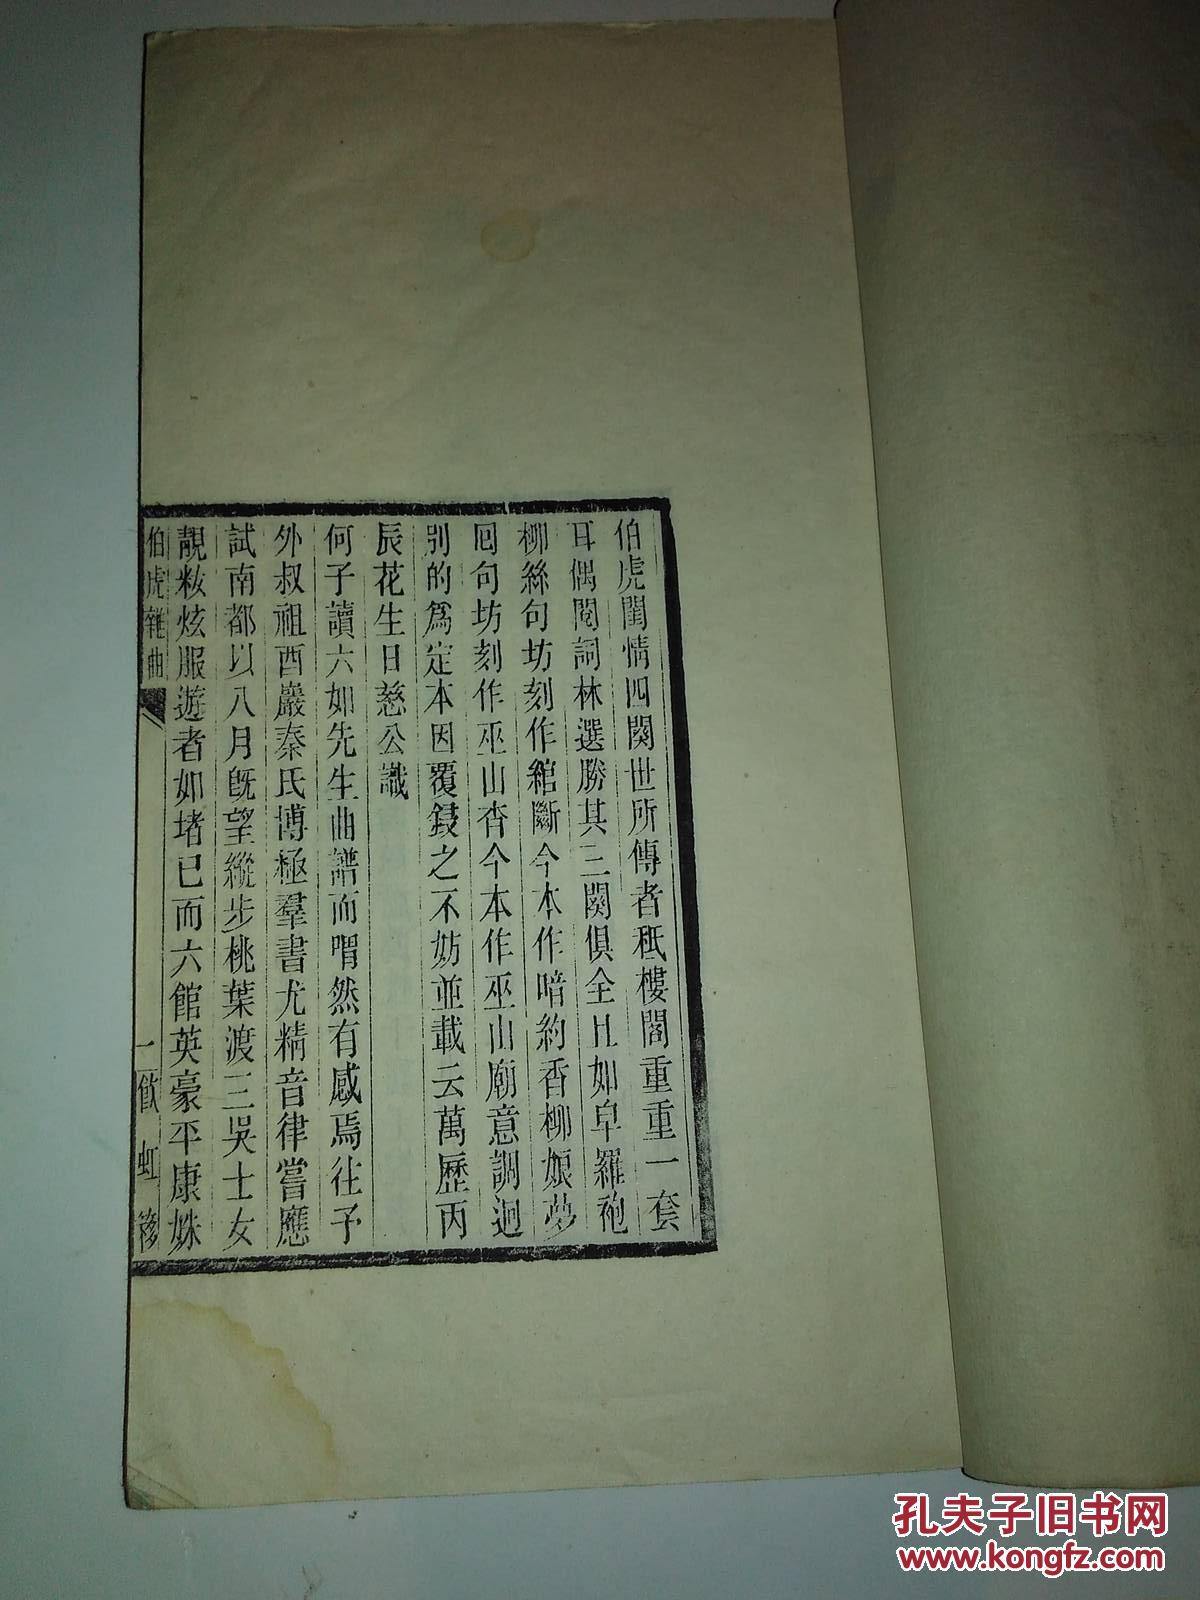 伯虎閨情四闋世所傳者秪樓閣重重一套
耳偶閱詞林選勝其三闋俱全且如皁羅袍
柳絲句坊刻作綰斷今本作暗約香柳娘夢
囘句坊刻作巫山杳今本作巫山廟意調迥
别的爲定本因覆鋟之不妨並載云萬歷丙
辰花生日慈公識
何子讀六如先生曲譜而喟然有感焉往予
外叔祖酉巖秦氏博極羣書尤精音律嘗應
試南都以八月旣望縱步桃葉渡三吳士女
靚粧炫服遊者如堵已而六館英豪平康姝
伯虎雜曲
一
飮虹簃
孔夫子旧书网
www.kongfz.com